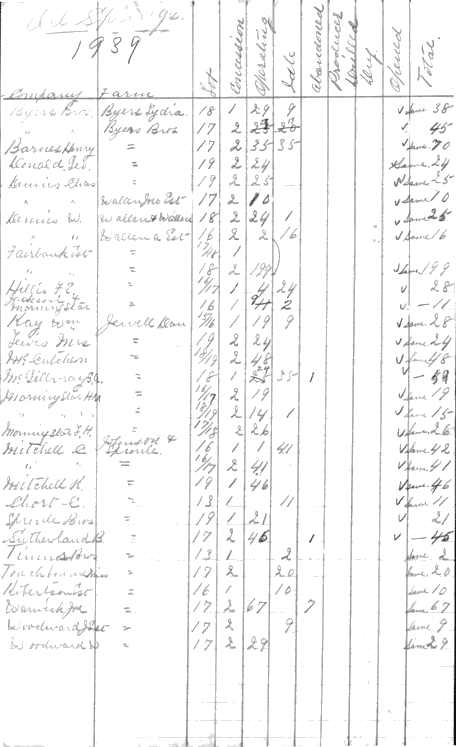 Oil Springs.
1939
Company Farm Lot Concession Operating Idle Abandoned Producer Drilled Dry Opened Total
Byers Bros. Byers Lydia 18 1 29 9 ✓ Same 38
" " Byers Bros 17 2 ✓ 45
Barnes Henry " 17 2 35 35 ✓ Same 70
Donald Geo. " 19 2 24 Same 24
Dennis Chas " 19 2 25 ✓ Same 25
" " Wallen Jno Est 17 2 10 ✓ Same 10
Dennis W. Wallen & Wallen 18 2 24 1 ✓ Same 25
Wallen A Est 16 2 2 16 ✓ Same 16
Fairbank Est " 17/18 1
" " 18 2 199 ✓ Same 199
Hillis F E. " 16/17 1 4 24 ✓ 28
Jackson & Morningstar " 16 1 2 ✓ - 11
Kay Wm Jewell Dean 17/16 1 19 9 ✓ Same 28
Lewis Mrs " 19 2 24 ✓ Same 24
McCutcheon " 18/19 2 48 ✓ Same 48
McGillvray " 18 1 35 1 - 59
Morningstar H M " 16/17 2 19 ✓ Same 19
" " " 18/19 2 14 1 ✓ Same 15
Morningstar F.H. " 17/18 2 26 ✓ Same 26
Mitchell C Johnson & Sproule 16 1 1 41 ✓ Same 42
" " " 16/17 2 41 ✓ Same 41
Mitchell K " 19 1 46 ✓ Same 46
Short C. " 13 1 11 ✓ Same 11
Sproule Bros " 19 1 21 ✓ 21
Sutherland B " 17 2 45 1 ✓ - 45
Timmis Bros " 13 1 2 Same 2
" 17 2 20 Same 20
" 16 1 10 Same 10
Warwick Joe " 17 2 67 7 Same 67
Woodward J Est " 17 2 9 Same 9
Woodward W " 17 2 29 Same 29